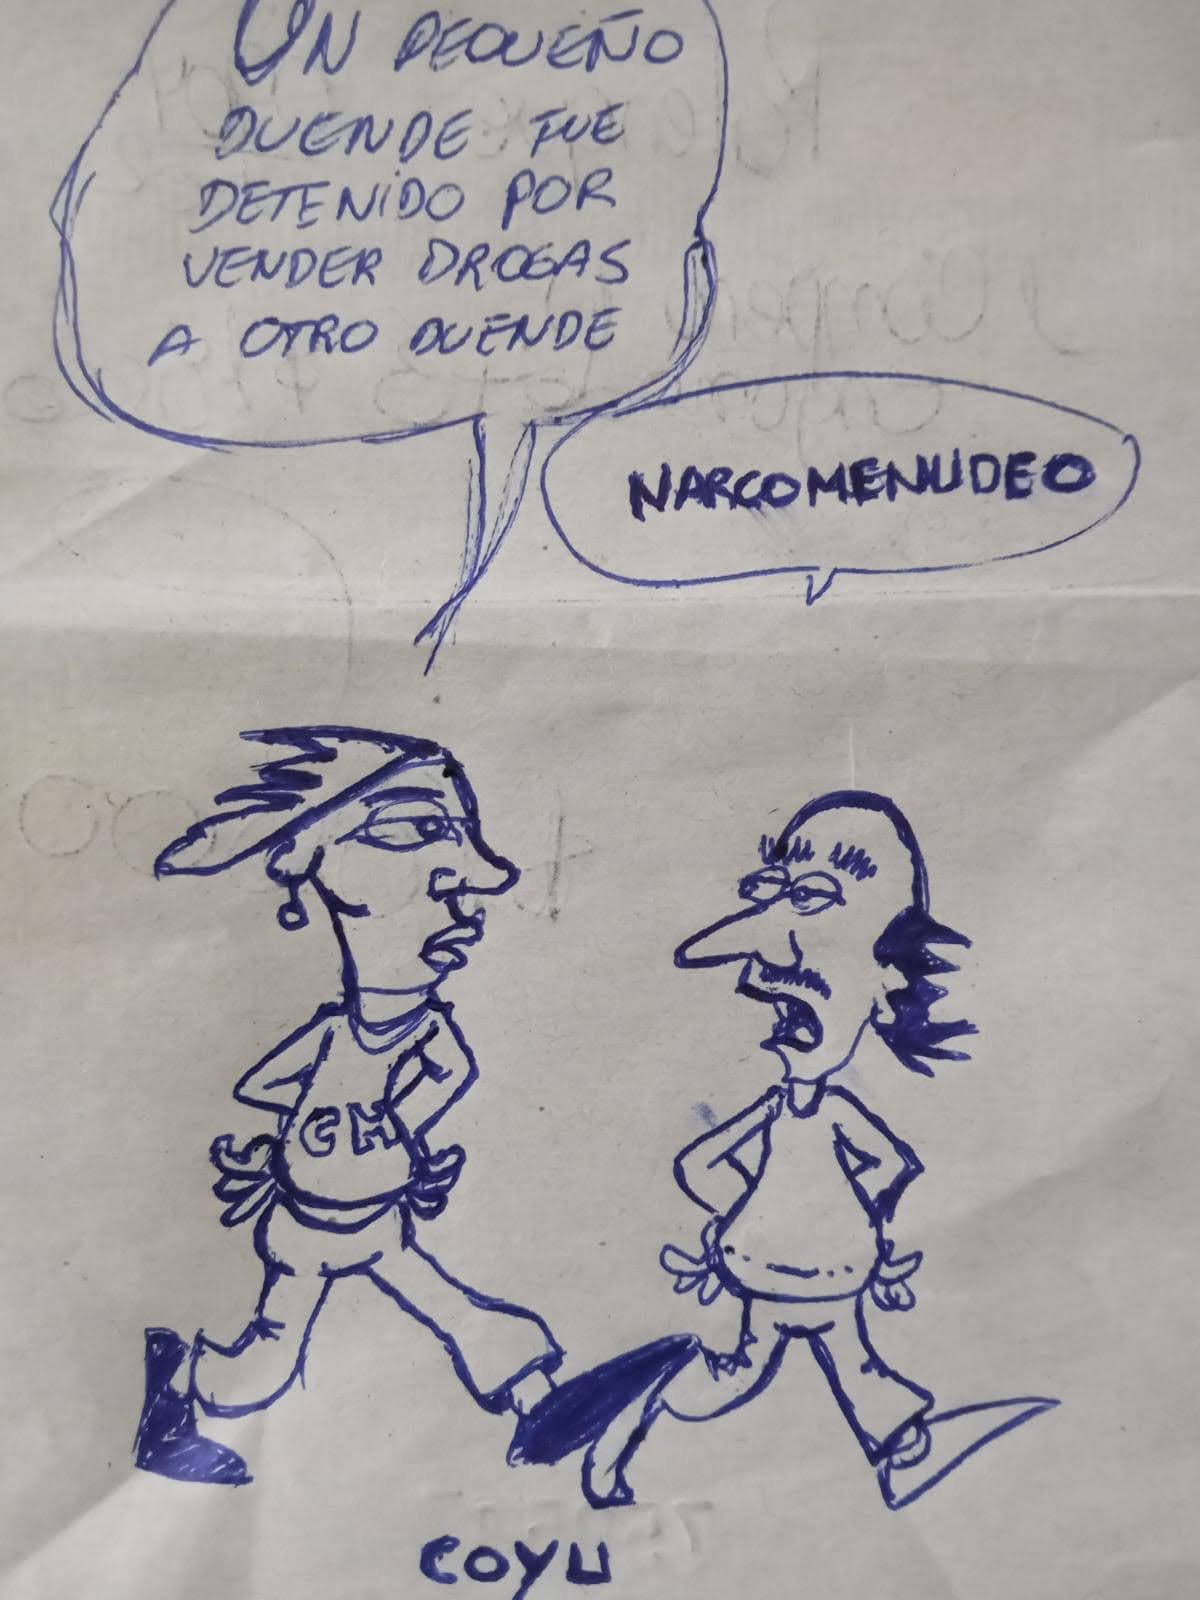 UN PEQUEÑO
DUENDE FUE
DETENIDO POR
VENDER DROGAS
A OTRO DUENDE
NARCOMENUDEO
CH
COYU